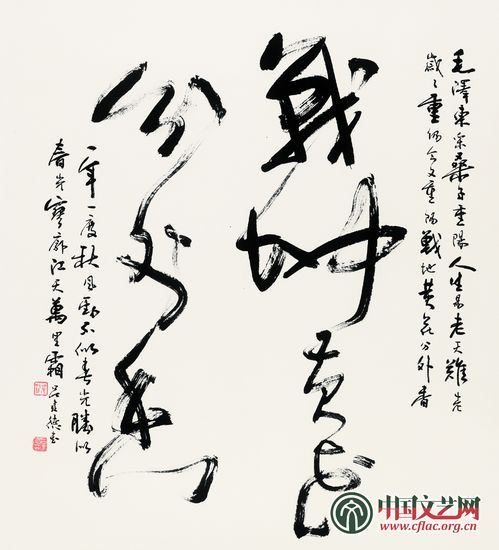 毛澤東采桑子重陽人生易老天難老
歲々重陽今又重陽戰地黄花分外香
戰地黄花
分外香
一年一度秋風勁不似春光勝似
春光寥廓江天萬里霜
中国文艺网
www.cflac.org.cn